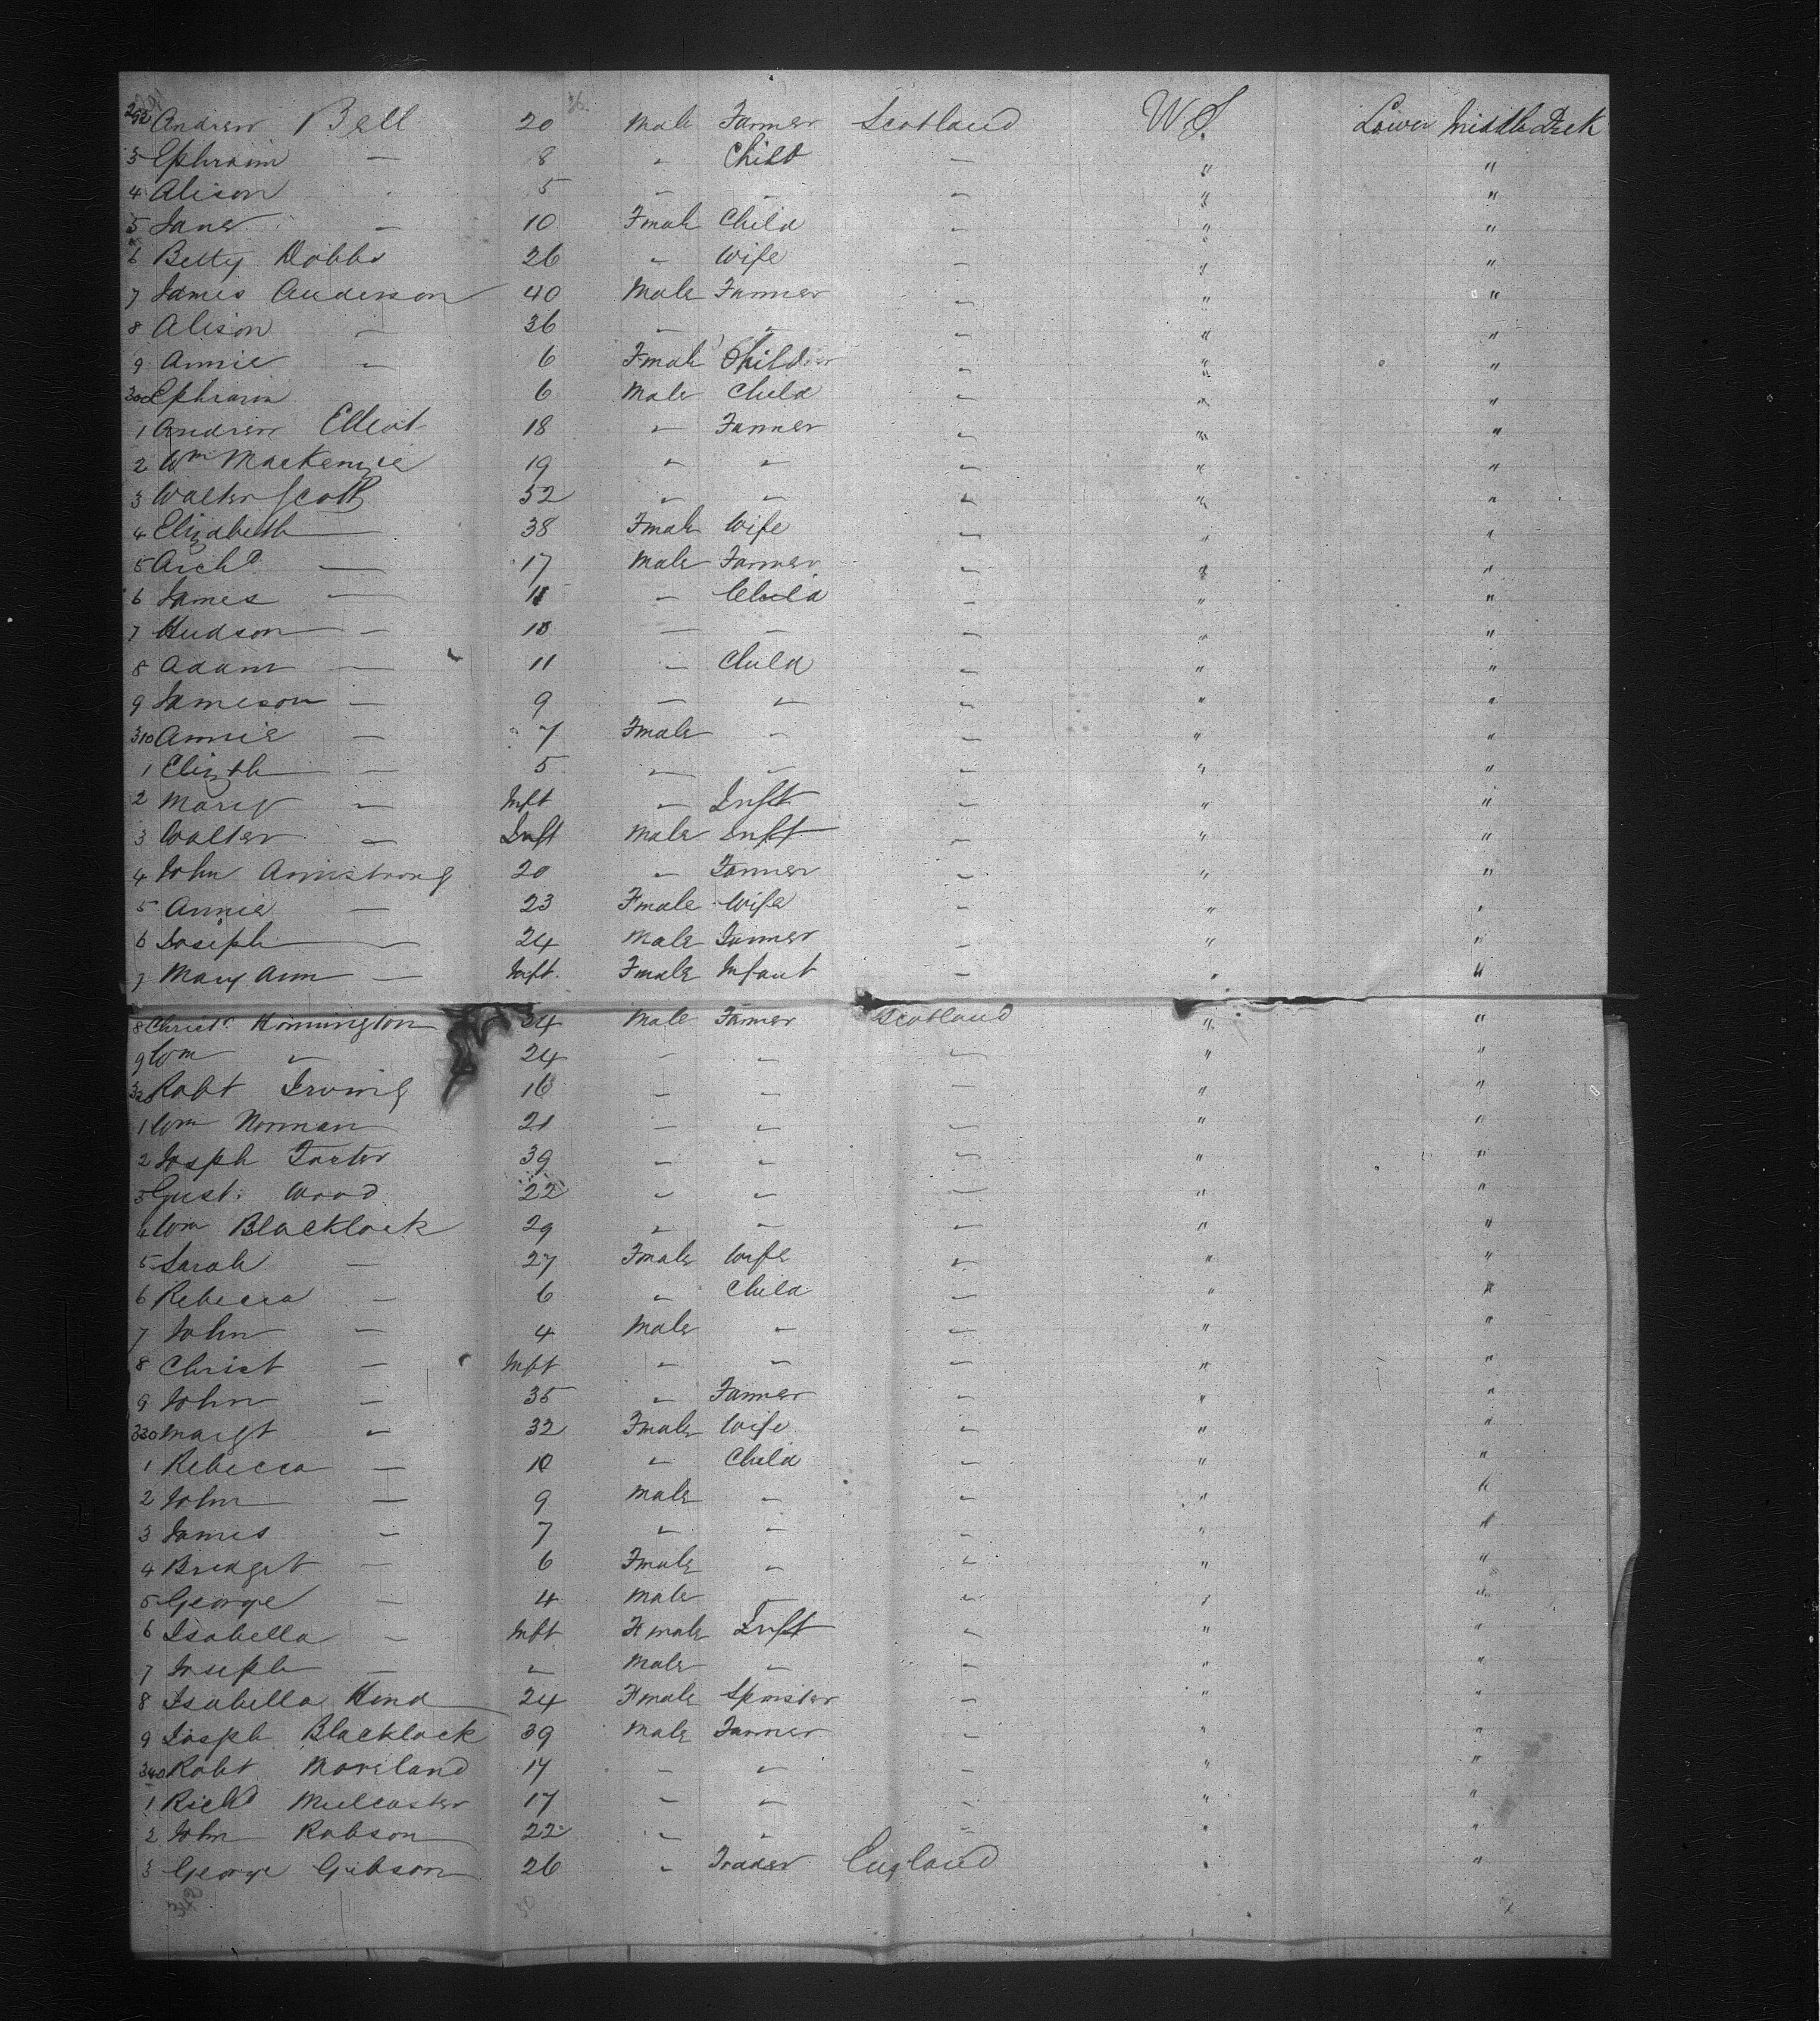 292 Andrew Bell 20 Male Farmer Scotland W.S. Lower Middle Deck
3 Ephraim — 8 " Child — " "
4 Alison 5 — — — " "
5 Jane — 10 Fmale Child — " "
6 Betty Dobbs 26 " Wife — " "
7 James Anderson 40 Male Farmer — " "
8 Alison — 36 — — — " "
9 Annie — 6 Fmale Child — " "
300 Ephraim 6 Male Child — " "
1 Andrew Elliot 18 — Farmer — " "
2 Wm MacKenzie 19 — — — " "
3 Walter Scott 52 — — — " "
4 Elizabeth — 38 Fmale Wife — " "
5 Archd — 17 Male Farmer — " "
6 James — 11 — Child — " "
7 Hudson — — — — " "
8 Adam — 11 — Child — " "
9 Jameson — 9 — — — " "
310 Annie — 7 Fmale — — " "
1 Elizth — 5 — — — " "
2 — Inft — Inft — " "
3 Walter — Inft Male Inft — " "
4 John Armstrong 20 — Farmer — " "
5 Annie — 23 Fmale Wife — " "
6 Joseph — 24 Male Farmer — " "
7 Mary Ann — Inft. Fmale Infant — " "
8 Christr 24 Male Farmer Scotland " "
9 Wm " 24 — — — " "
320 Robt Irving 16 — — — " "
1 Wm Norman 21 — — — " "
2 Joseph 39 — — — " "
3 Gust. Wood 22 — — — " "
4 Wm Blacklock 29 — — — " "
5 Sarah — 27 Fmale Wife — " "
6 Rebecca — 6 — Child — " "
7 John — 4 Male — — " "
8 Christ — Inft — — — " "
9 John — 35 — Farmer — " "
330 Margt — 32 Fmale Wife — " "
1 Rebecca — 10 — Child — " "
2 John — 9 Male — — " "
3 James — 7 — — — " "
4 Bridget — 6 Fmale — — " "
5 George — 4 Male — — " "
6 Isabella — Inft Fmale Inft — " "
7 Joseph — — Male — — " "
8 Isabella Hind 24 Fmale Spinster — " "
9 Josph Blacklock 39 Male Farmer — " "
340 Robt Moreland 17 — — — " "
1 Richd Mulcaster 17 — — — " "
2 John Robson 22 — — — " "
3 George Gibson 26 — Trader England " "
343